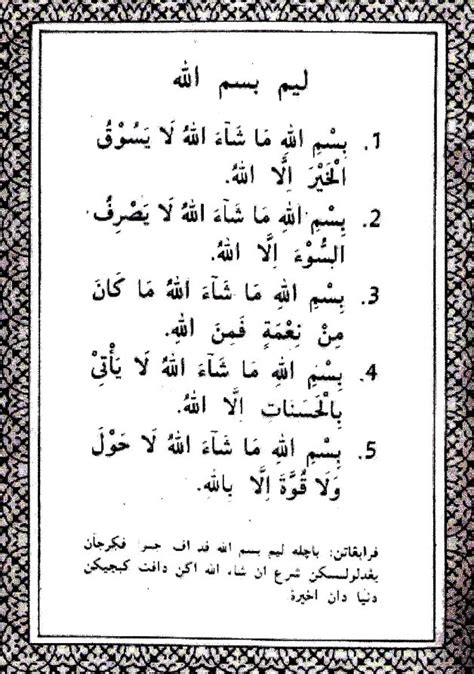 ليم بسم الله
1. بِسْمِ اللهِ مَا شَآءَ اللهُ لَا يَسُوْقُ
الْخَيْرَ اِلَّا اللهُ.
2. بِسْمِ اللهِ مَا شَآءَ اللهُ لَا يَصْرِفُ
السُّوْءَ اِلَّا اللهُ.
3. بِسْمِ اللهِ مَا شَآءَ اللهُ مَا كَانَ
مِنْ نِعْمَةٍ فَمِنَ اللهِ.
4. بِسْمِ اللهِ مَا شَآءَ اللهُ لَا يَأْتِيْ
بِالْحَسَنَاتِ اِلَّا اللهُ.
5. بِسْمِ اللهِ مَا شَآءَ اللهُ لَا حَوْلَ
وَلَا قُوَّةَ اِلَّا بِاللهِ.
فرايڠاتن: باچله ليم بسم الله فد اف جوا فكرجأن
يڠدلولسكن شرع ان شاء الله اكن دافت كبجيكن
دنيا دان اخيرة